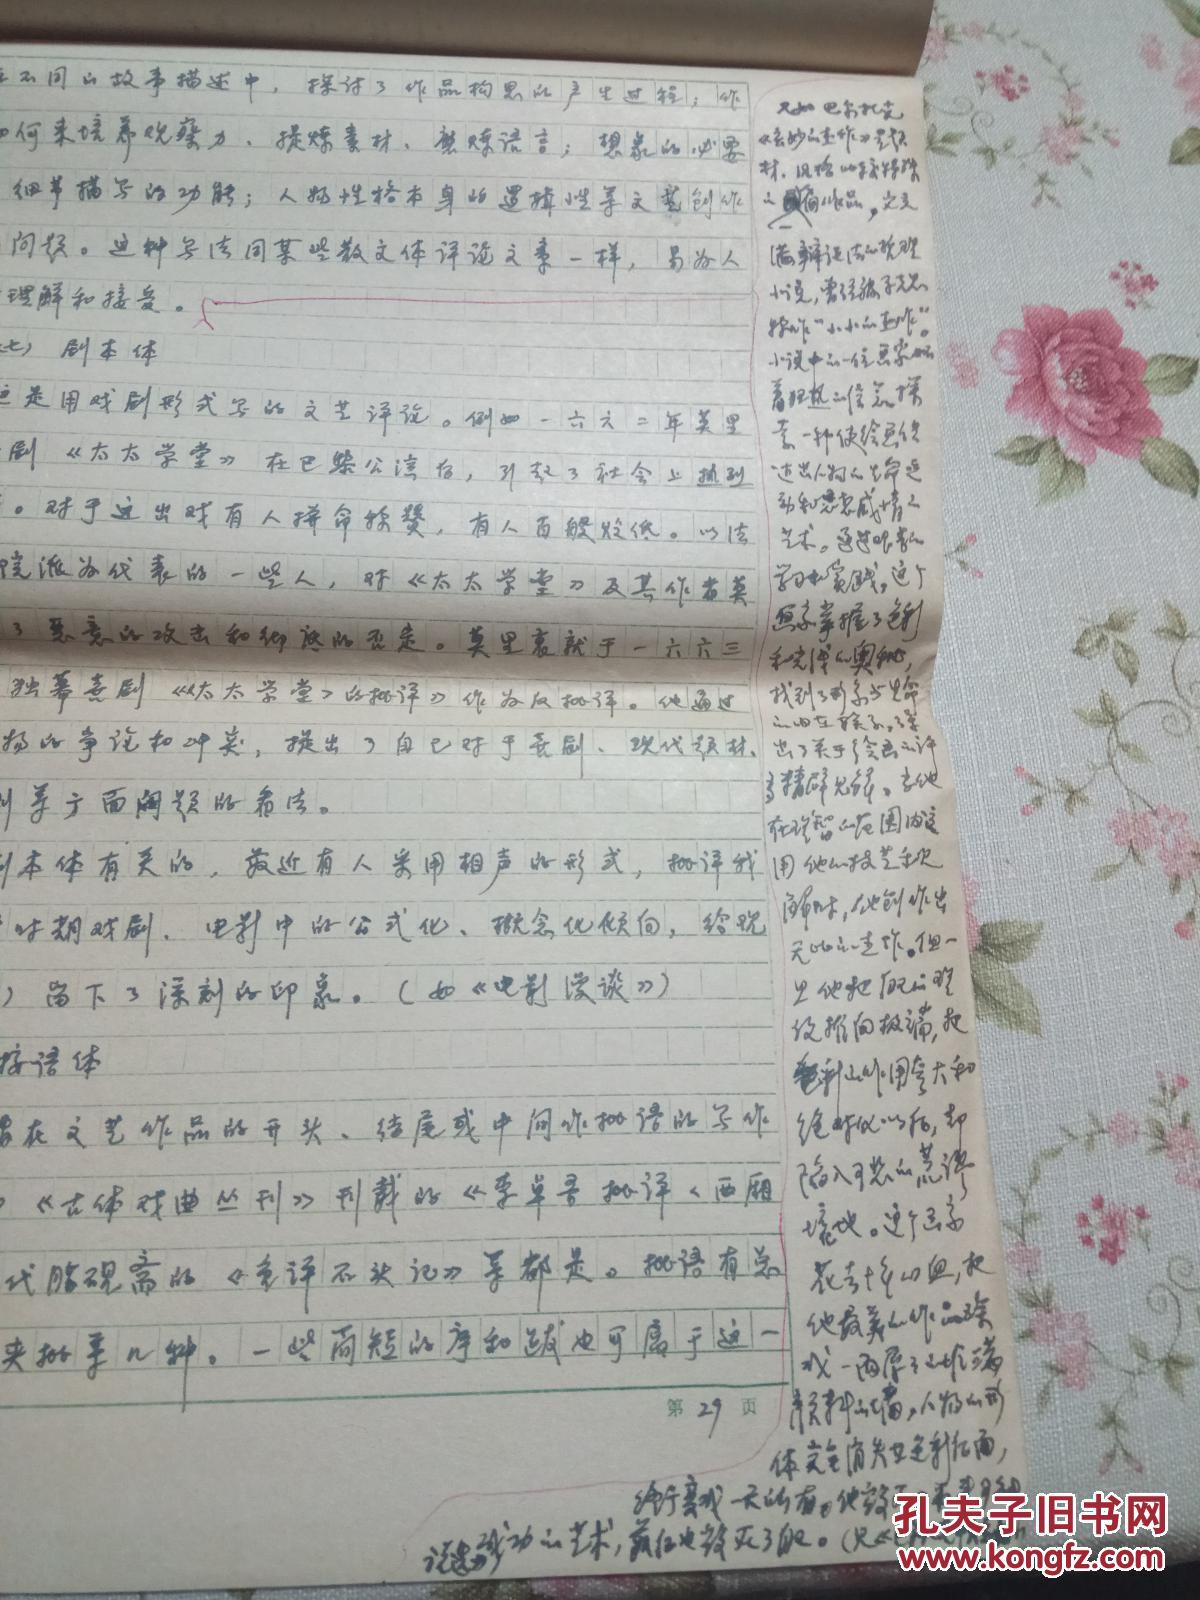 不同的故事描述中，探讨了作品构思的产生过程；作
何来培养观察力、提炼素材、磨炼语言；想象的必要
细节描写的功能；人物性格本身的逻辑性等文艺创作
问题。这种写法同某些散文体评论文章一样，易为人
理解和接受。
七）剧本体
是用戏剧形式写的文艺评论。例如一六六二年莫里
剧《太太学堂》在巴黎公演后，引起了社会上热烈
。对于这出戏有人拼命称赞，有人百般贬低。以法
院派为代表的一些人，对《太太学堂》及其作者莫
了恶意的攻击和彻底的否定。莫里哀就于一六六三
独幕喜剧《〈太太学堂〉的批评》作为反批评。他通过
物的争论和冲突，提出了自己对于喜剧、现代题材、
等方面问题的看法。
本体有关的，最近有人采用相声的形式，批评我
时期戏剧、电影中的公式化、概念化倾向，给观
）留下了深刻的印象。（如《电影漫谈》）
语体
在文艺作品的开头、结尾或中间作批语的写作
《古体戏曲丛刊》刊载的《李卓吾批评〈西厢
代脂砚斋的《重评石头记》等都是。批语有总
夹批等几种。一些简短的序和跋也可属于这一
第29页
又如巴尔扎克
《玄妙的杰作》是题
材、风格比较特殊
的一篇作品，充
满辩证法的哲理
小说，曾经被马克思
称作“小小的杰作”。
小说中的一位画家
着狂热的信念探
索一种使绘画传
达出人物的生命运
动和思想感情的
艺术。通过艰苦的
学习和实践，这个
画家掌握了色彩
和光线的奥秘，
找到了形象与生命
的内在联系，
出了关于绘画的许
多精辟见解。当他
在理智的范围内运
用他的技艺和见
解时，他创作出
无比的杰作。但一
旦他把
推向极端，把
色彩的作用夸大和
绝对化以后，却
陷入可悲的荒谬
境地。这个画家
花去十年心血，把
他最美的作品涂
成一面厚厚的堆满
颜料的墙，人物的形
体完全消失在色彩后面，
终于变成一无所有。他
成功的艺术，最后也毁灭了自己。
孔夫子旧书网
www.kongfz.com